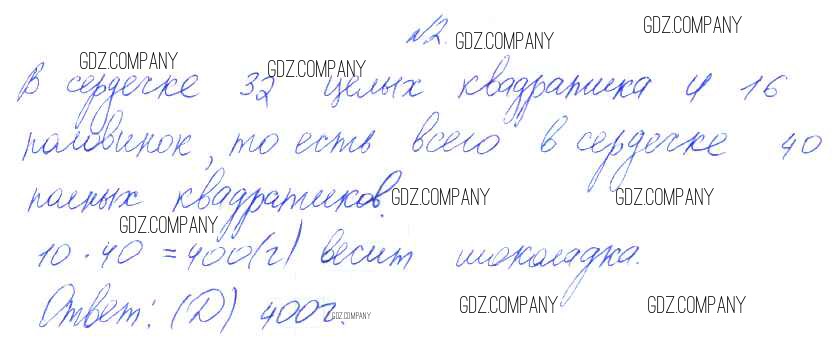 №2.
В сердечке 32 целых квадратика и 16
половинок, то есть всего в сердечке 40
полных квадратиков.
10 · 40 = 400 (г) весит шоколадка.
Ответ: (D) 400г.
GDZ.COMPANY
GDZ.COMPANY
GDZ.COMPANY
GDZ.COMPANY
GDZ.COMPANY
GDZ.COMPANY
GDZ.COMPANY
GDZ.COMPANY
GDZ.COMPANY
GDZ.COMPANY